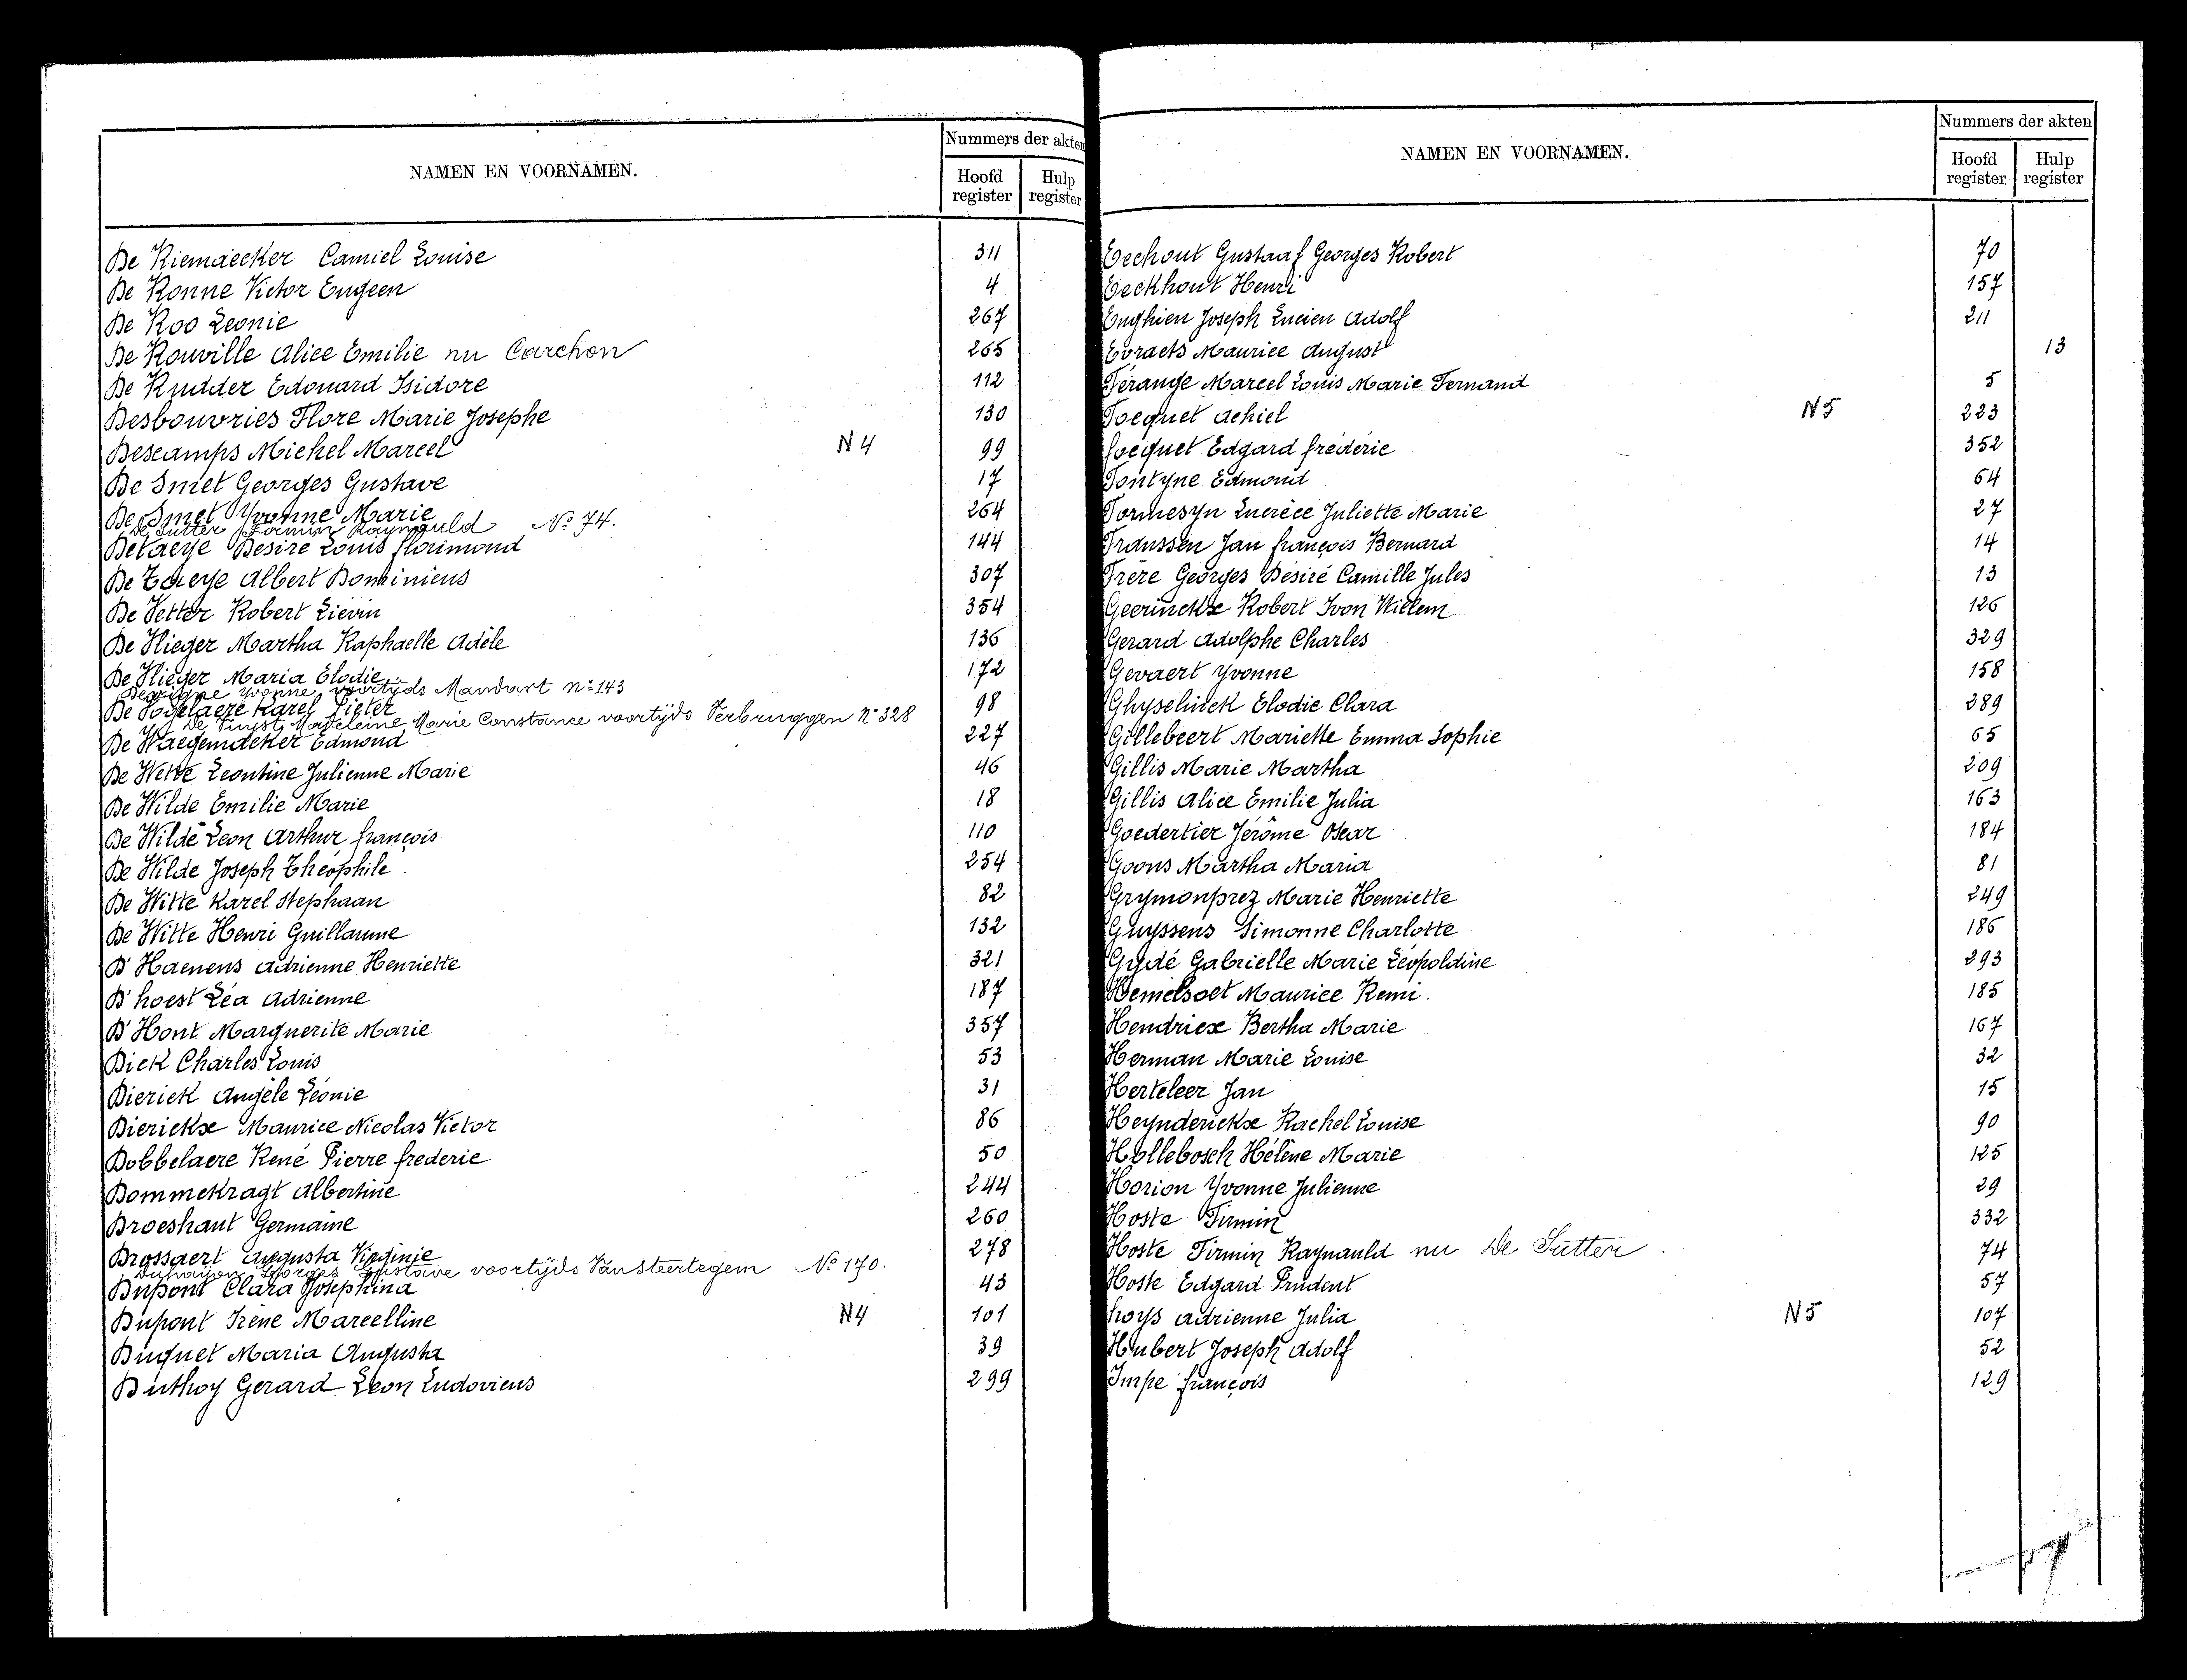 Nummers der akten
NAMEN EN VOORNAMEN.
Hoofd register Hulp register
De Riemaecker Camiel Louise 311
De Ronne Victor Eugeen 4
De Roo Leonie 267
De Rouville Alice Emilie nu Carchon 265
De Rudder Edouard Isidore 112
Desbouvries Flore Marie Josephe 130
Descamps Michel Marcel N4 99
De Smet Georges Gustave 17
De Smet Yvonne Marie 264
De Sutter Firmin Raynauld No 74.
Detaeye Desiré Louis florimond 144
De Taeye Albert Dominicus 307
De Vetter Robert Liévin 354
De Vlieger Martha Raphaelle Adèle 136
De Vlieger Maria Elodie 172
Yvonne voortijds Mandart no 143
De Vogelaere Karel Pieter 98
De Vuyst Madeleine Marie Constance voortijds Verbruggen No 328
De Waegemaeker Edmond 227
De Wette Leontine Julienne Marie 46
De Wilde Emilie Marie 18
De Wilde Leon Arthur françois 110
De Wilde Joseph Théophile. 254
De Witte Karel Stephaan 82
De Witte Henri Guillaume 132
D'Haenens Adrienne Henriette 321
D'hoest Léa Adrienne 187
D'Hont Marguerite Marie 357
Dick Charles Louis 53
Dierick Angèle Léonie 31
Dierickx Maurice Nicolas Victor 86
Dobbelaere René Pierre frederic 50
Dommekragt Albertine 244
Droeshaut Germaine 260
Drossaert Augusta Virginie 278
Georges Gustave voortijds Van Steertegem No 170.
Dupont Clara Josephina 43
Dupont Irène Marcelline N4 101
Duquet Maria Augusta 39
Duthoy Gerard Leon Ludovicus 299
Nummers der akten
NAMEN EN VOORNAMEN.
Hoofd register Hulp register
Eechout Gustaaf Georges Robert 70
Eeckhout Henri 157
Enghien Joseph Lucien Adolf 211
Evraets Maurice August 13
Férange Marcel Louis Marie Fernand 5
Focquet Achiel N5 223
focquet Edgard fréderic 352
Fontyne Edmond 64
Formesyn Lucrèce Juliette Marie 27
Franssen Jan françois Bernard 14
Frère Georges Désiré Camille Jules 13
Geerinckx Robert Ivon Willem 126
Gerard Adolphe Charles 329
Gevaert Yvonne 158
Ghyselinck Elodie Clara 289
Gillebeert Mariette Emma Sophie 65
Gillis Marie Martha 209
Gillis Alice Emilie Julia 163
Goedertier Jérôme Oscar 184
Goons Martha Maria 81
Grymonprez Marie Henriette 249
Guyssens Simonne Charlotte 186
Gydé Gabrielle Marie Léopoldine 293
Hemelsoet Maurice Remi. 185
Hendricx Bertha Marie 167
Herman Marie Louise 32
Herteleer Jan 15
Heynderickx Rachel Louise 90
Hollebosch Hélène Marie 125
Horion Yvonne Julienne 29
Hoste Firmin 332
Hoste Firmin Raynauld nu De Sutter. 74
Hoste Edgard Prudent 57
hoys Adrienne Julia N5 107
Hubert Joseph Adolf 52
Impe françois 129